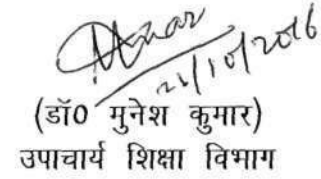 21/10/2016
(डॉ0 मुनेश कुमार)
उपाचार्य शिक्षा विभाग